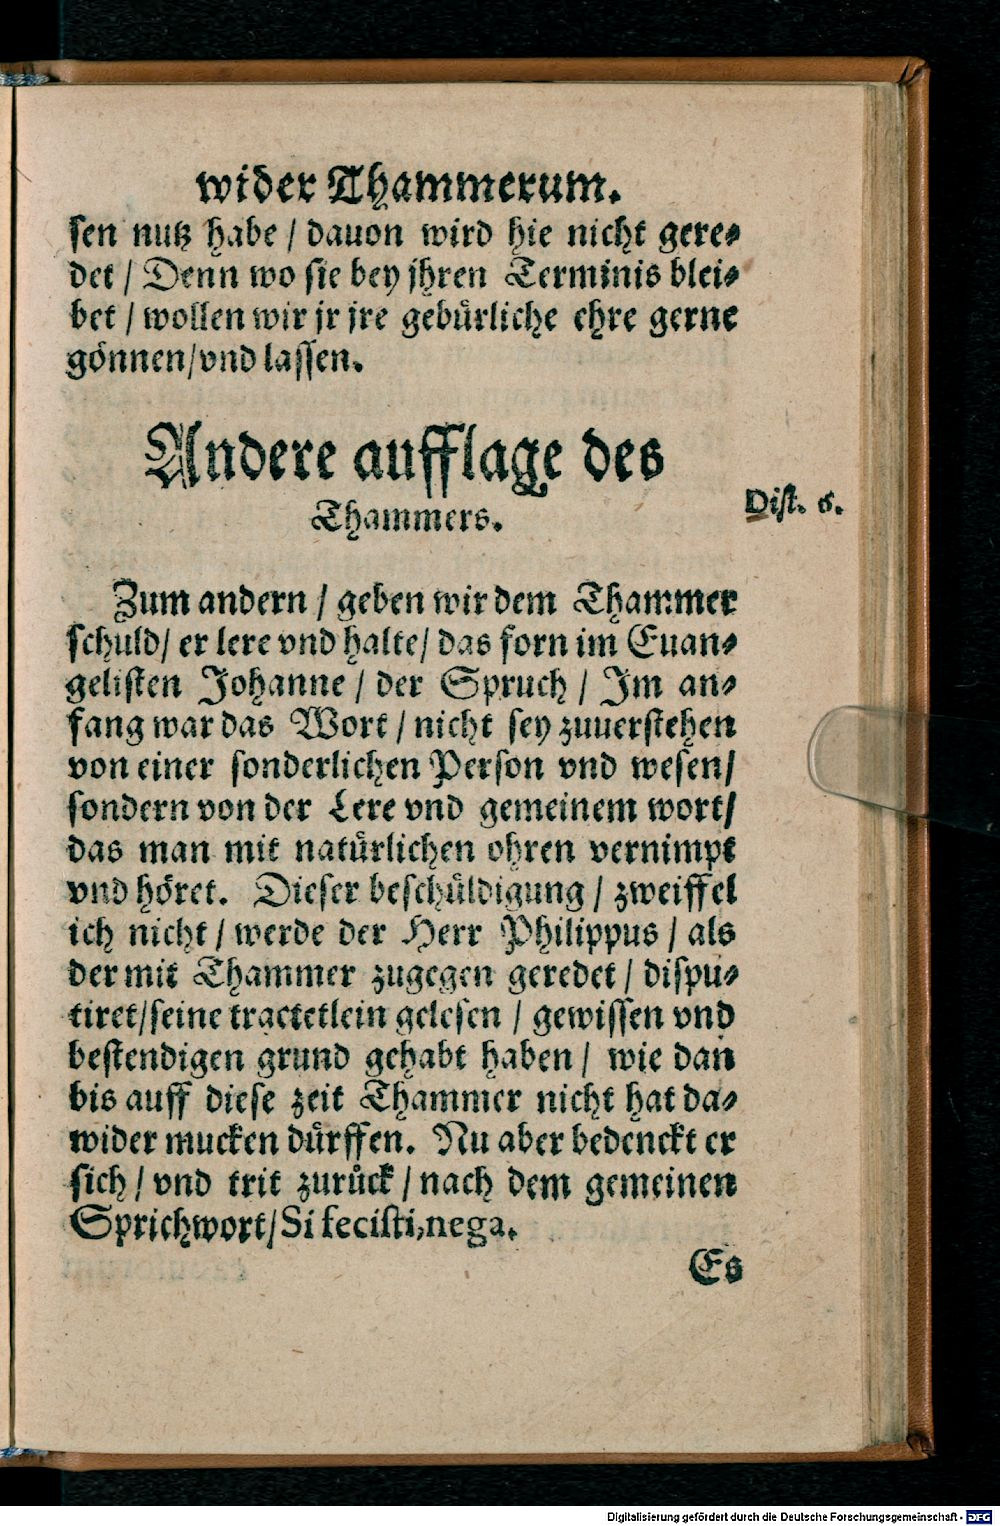 wider Thammerum.
sen nutz habe / dauon wird hie nicht gere⸗
det / Denn wo sie bey jhren Terminis blei⸗
bet / wollen wir jr jre gebürliche ehre gerne
gönnen/vnd lassen.
Andere aufflage des
Thammers.
Dist. 6.
Zum andern / geben wir dem Thammer
schuld/ er lere vnd halte/ das forn im Euan⸗
gelisten Johanne / der Spruch / Im an⸗
fang war das Wort / nicht sey zuuerstehen
von einer sonderlichen Person vnd wesen/
sondern von der Lere vnd gemeinem wort/
das man mit natürlichen ohren vernimpt
vnd höret. Dieser beschüldigung / zweiffel
ich nicht / werde der Herr Philippus / als
der mit Thammer zugegen geredet / dispu⸗
tiret/seine tractetlein gelesen / gewissen vnd
bestendigen grund gehabt haben / wie dan
bis auff diese zeit Thammer nicht hat da⸗
wider mucken dürffen. Nu aber bedenckt er
sich / vnd trit zurück / nach dem gemeinen
Sprichwort/ Si fecisti, nega.
Es
Digitalisierung gefördert durch die Deutsche Forschungsgemeinschaft - DFG